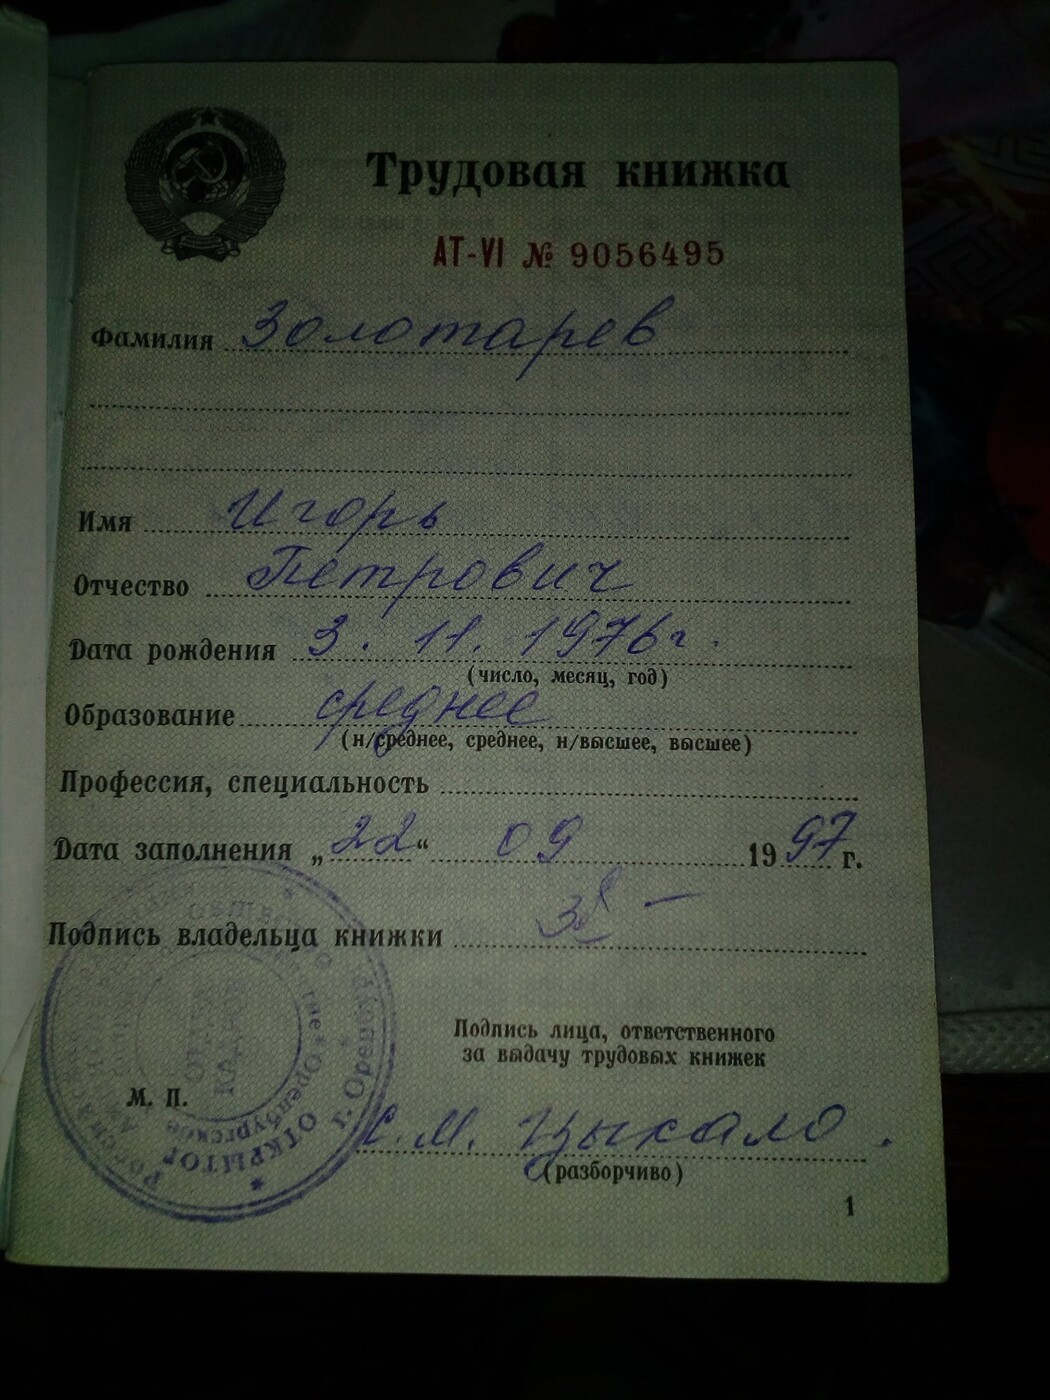 Трудовая книжка
АТ-VI № 9056495
Фамилия Золотарев
Имя Игорь
Отчество Петрович
Дата рождения 3. 11. 1976 г.
(число, месяц, год)
Образование среднее
(н/среднее, среднее, н/высшее, высшее)
Профессия, специальность
Дата заполнения „22“ 09 1997 г.
Подпись владельца книжки
Подпись лица, ответственного
за выдачу трудовых книжек
М. П.
С. М. Цыкало.
(разборчиво)
1